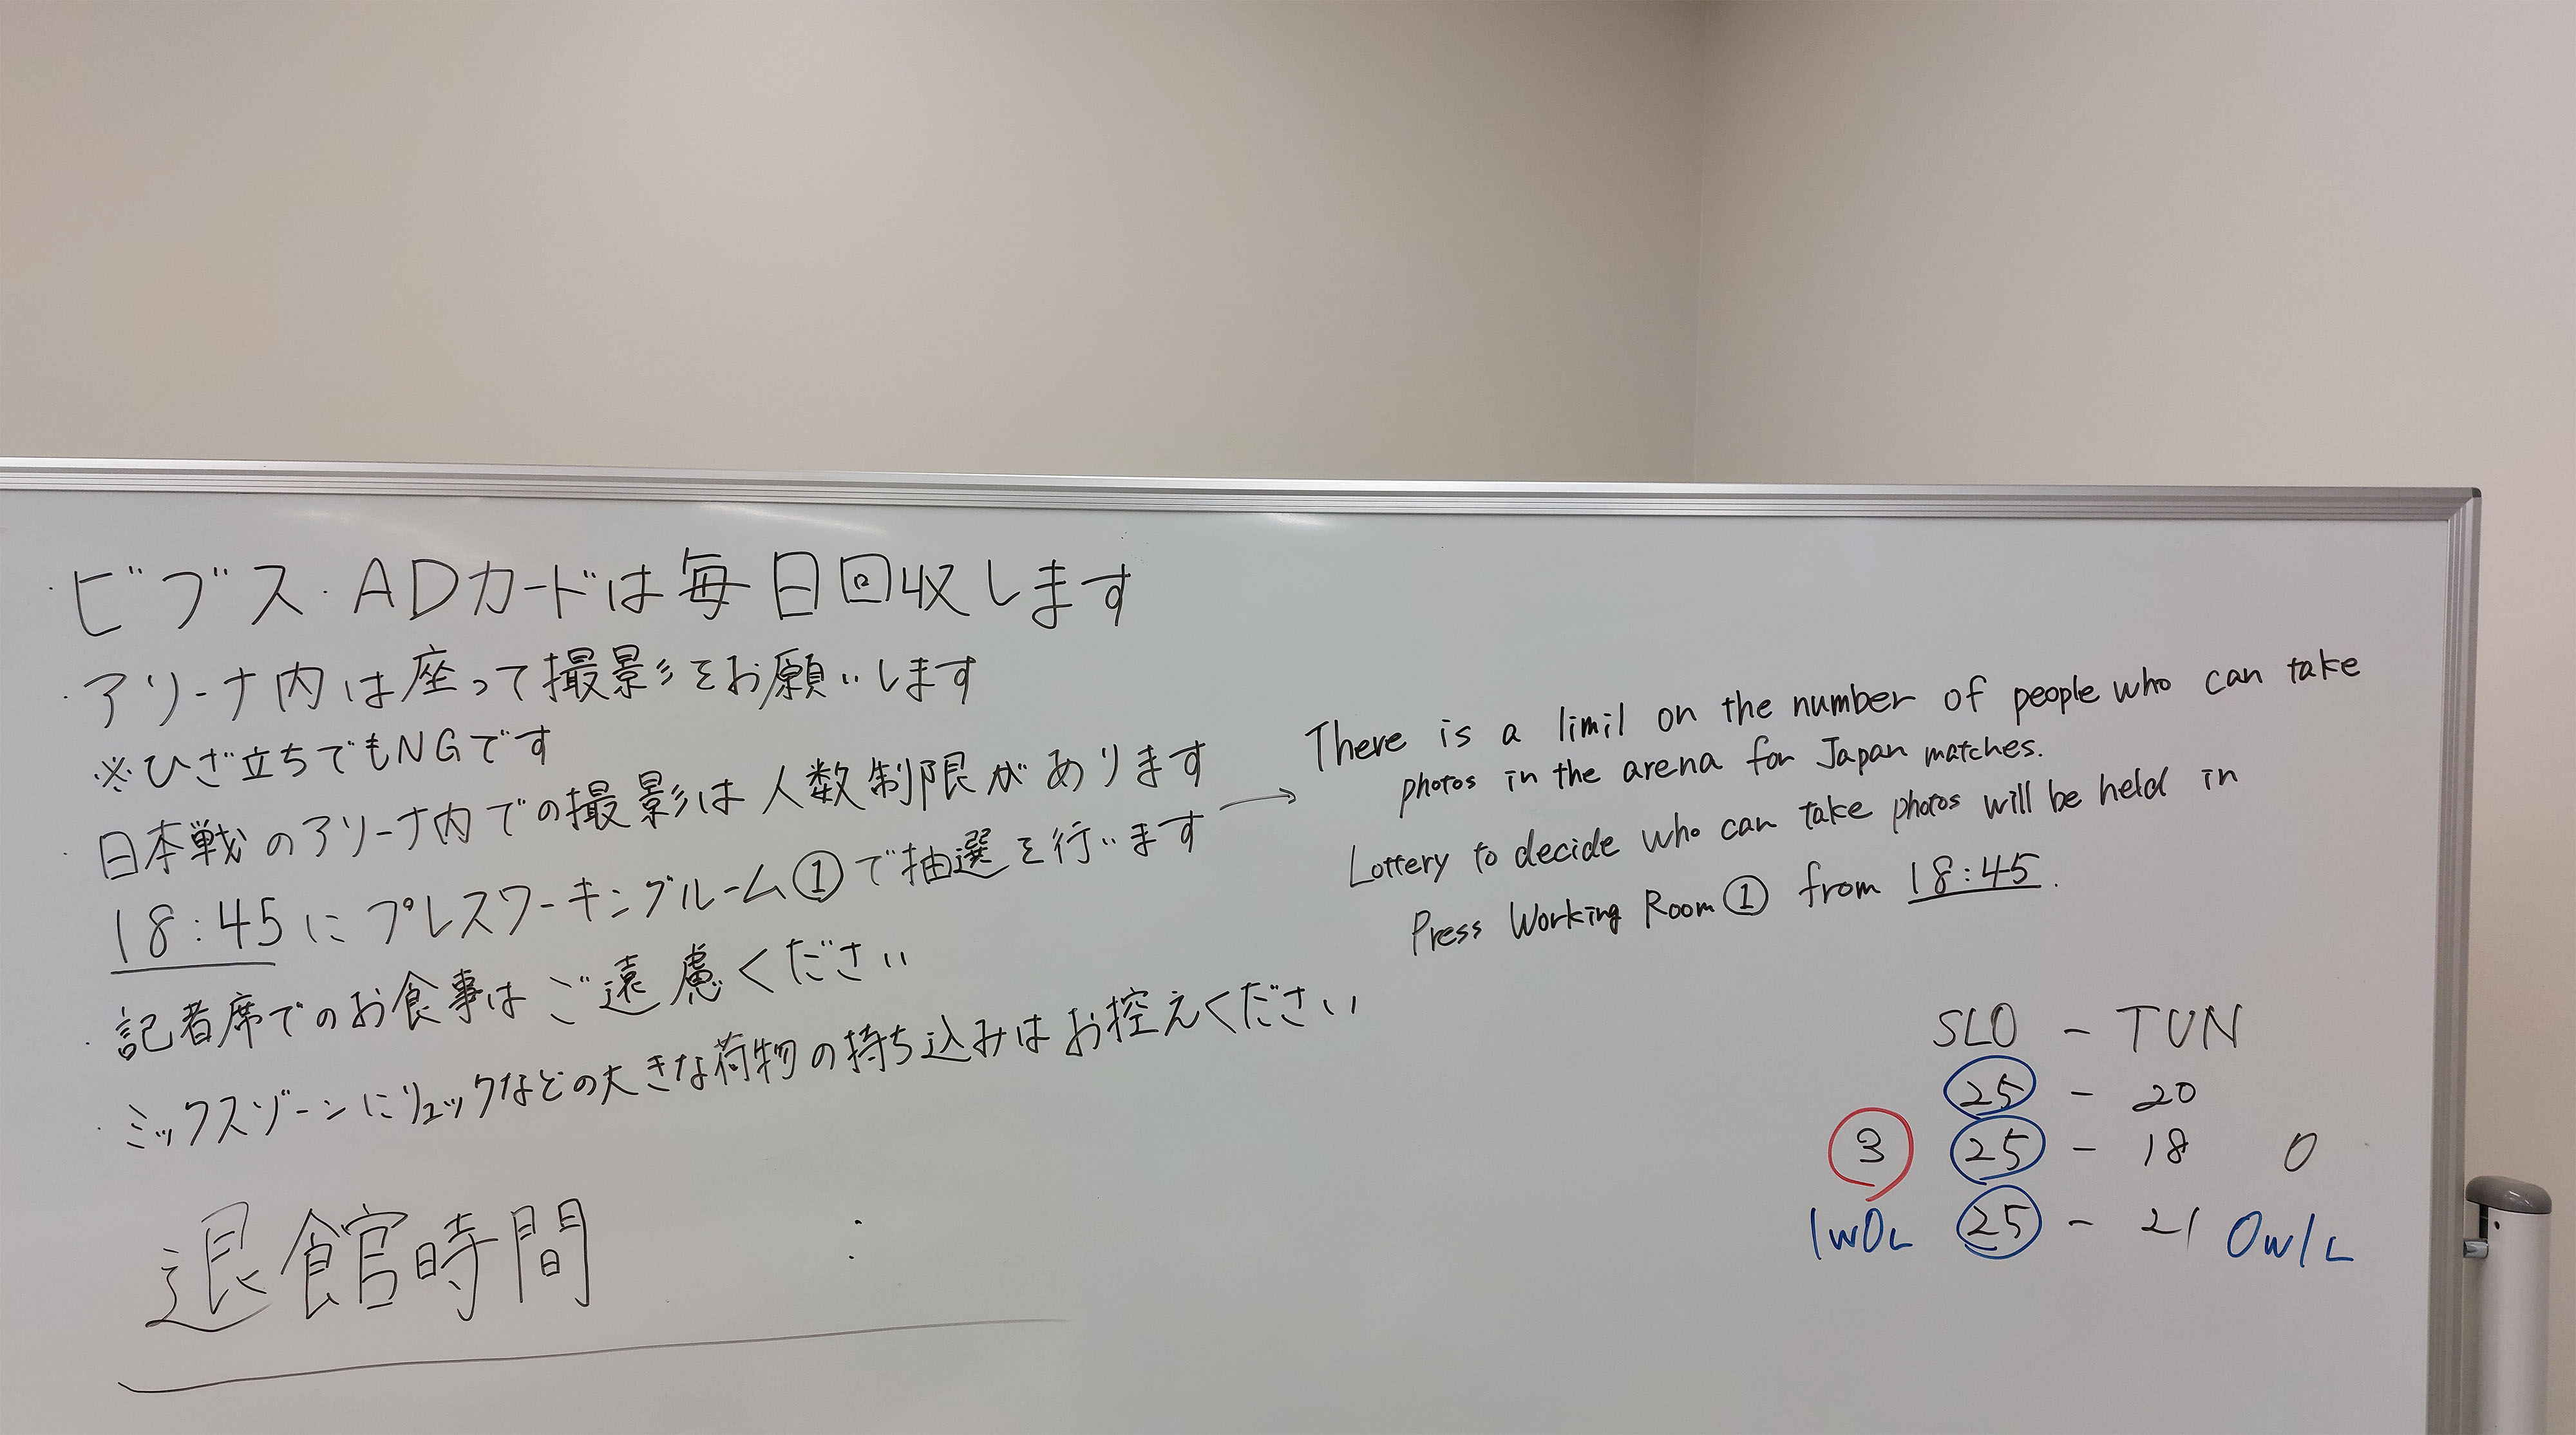 ・ビブス・ADカードは毎日回収します
・アリーナ内は座って撮影をお願いします
※ひざ立ちでもNGです
・日本戦のアリーナ内での撮影は人数制限があります
18:45にプレスワーキングルーム①で抽選を行います
・記者席でのお食事はご遠慮ください
・ミックスゾーンにリュックなどの大きな荷物の持ち込みはお控えください
退館時間 :
→ There is a limit on the number of people who can take
photos in the arena for Japan matches.
Lottery to decide who can take photos will be held in
Press Working Room ① from 18:45.
SLO - TUN
25 - 20
3 25 - 18 0
1W0L 25 - 21 0W1L